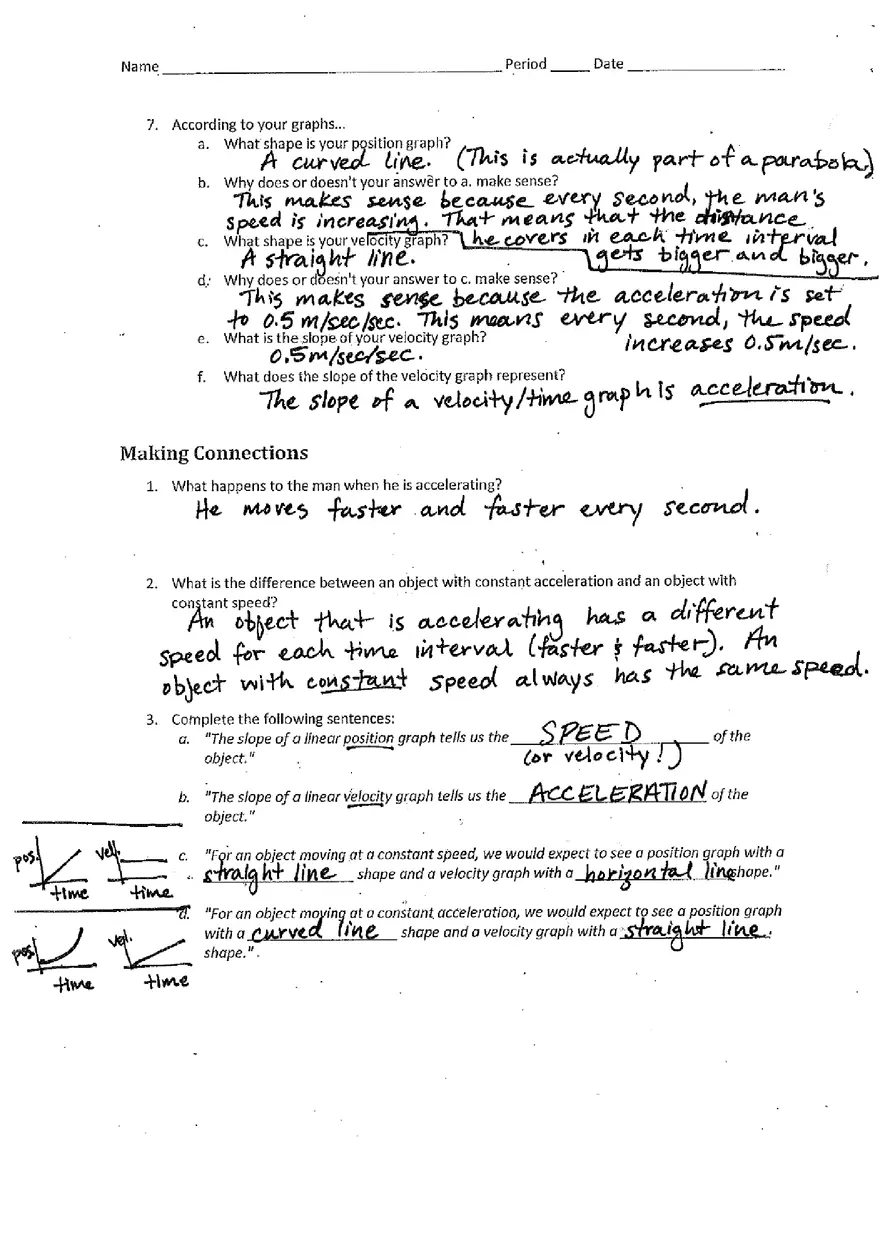 Name Period Date
7. According to your graphs...
a. What shape is your position graph?
A curved line. (This is actually part of a parabola.)
b. Why does or doesn't your answer to a. make sense?
This makes sense because every second, the man's
speed is increasing. That means that the distance
he covers in each time interval
gets bigger and bigger.
c. What shape is your velocity graph?
A straight line.
d. Why does or doesn't your answer to c. make sense?
This makes sense because the acceleration is set
to 0.5 m/sec/sec. This means every second, the speed
increases 0.5m/sec.
e. What is the slope of your velocity graph?
0.5m/sec/sec.
f. What does the slope of the velocity graph represent?
The slope of a velocity/time graph is acceleration.
Making Connections
1. What happens to the man when he is accelerating?
He moves faster and faster every second.
2. What is the difference between an object with constant acceleration and an object with
constant speed?
An object that is accelerating has a different
speed for each time interval (faster & faster). An
object with constant speed always has the same speed.
3. Complete the following sentences:
a. "The slope of a linear position graph tells us the SPEED of the
(or velocity!)
object."
b. "The slope of a linear velocity graph tells us the ACCELERATION of the
object."
pos. time vel. time
c. "For an object moving at a constant speed, we would expect to see a position graph with a
straight line shape and a velocity graph with a horizontal line shape."
pos. time vel. time
d. "For an object moving at a constant acceleration, we would expect to see a position graph
with a curved line shape and a velocity graph with a straight line.
shape."